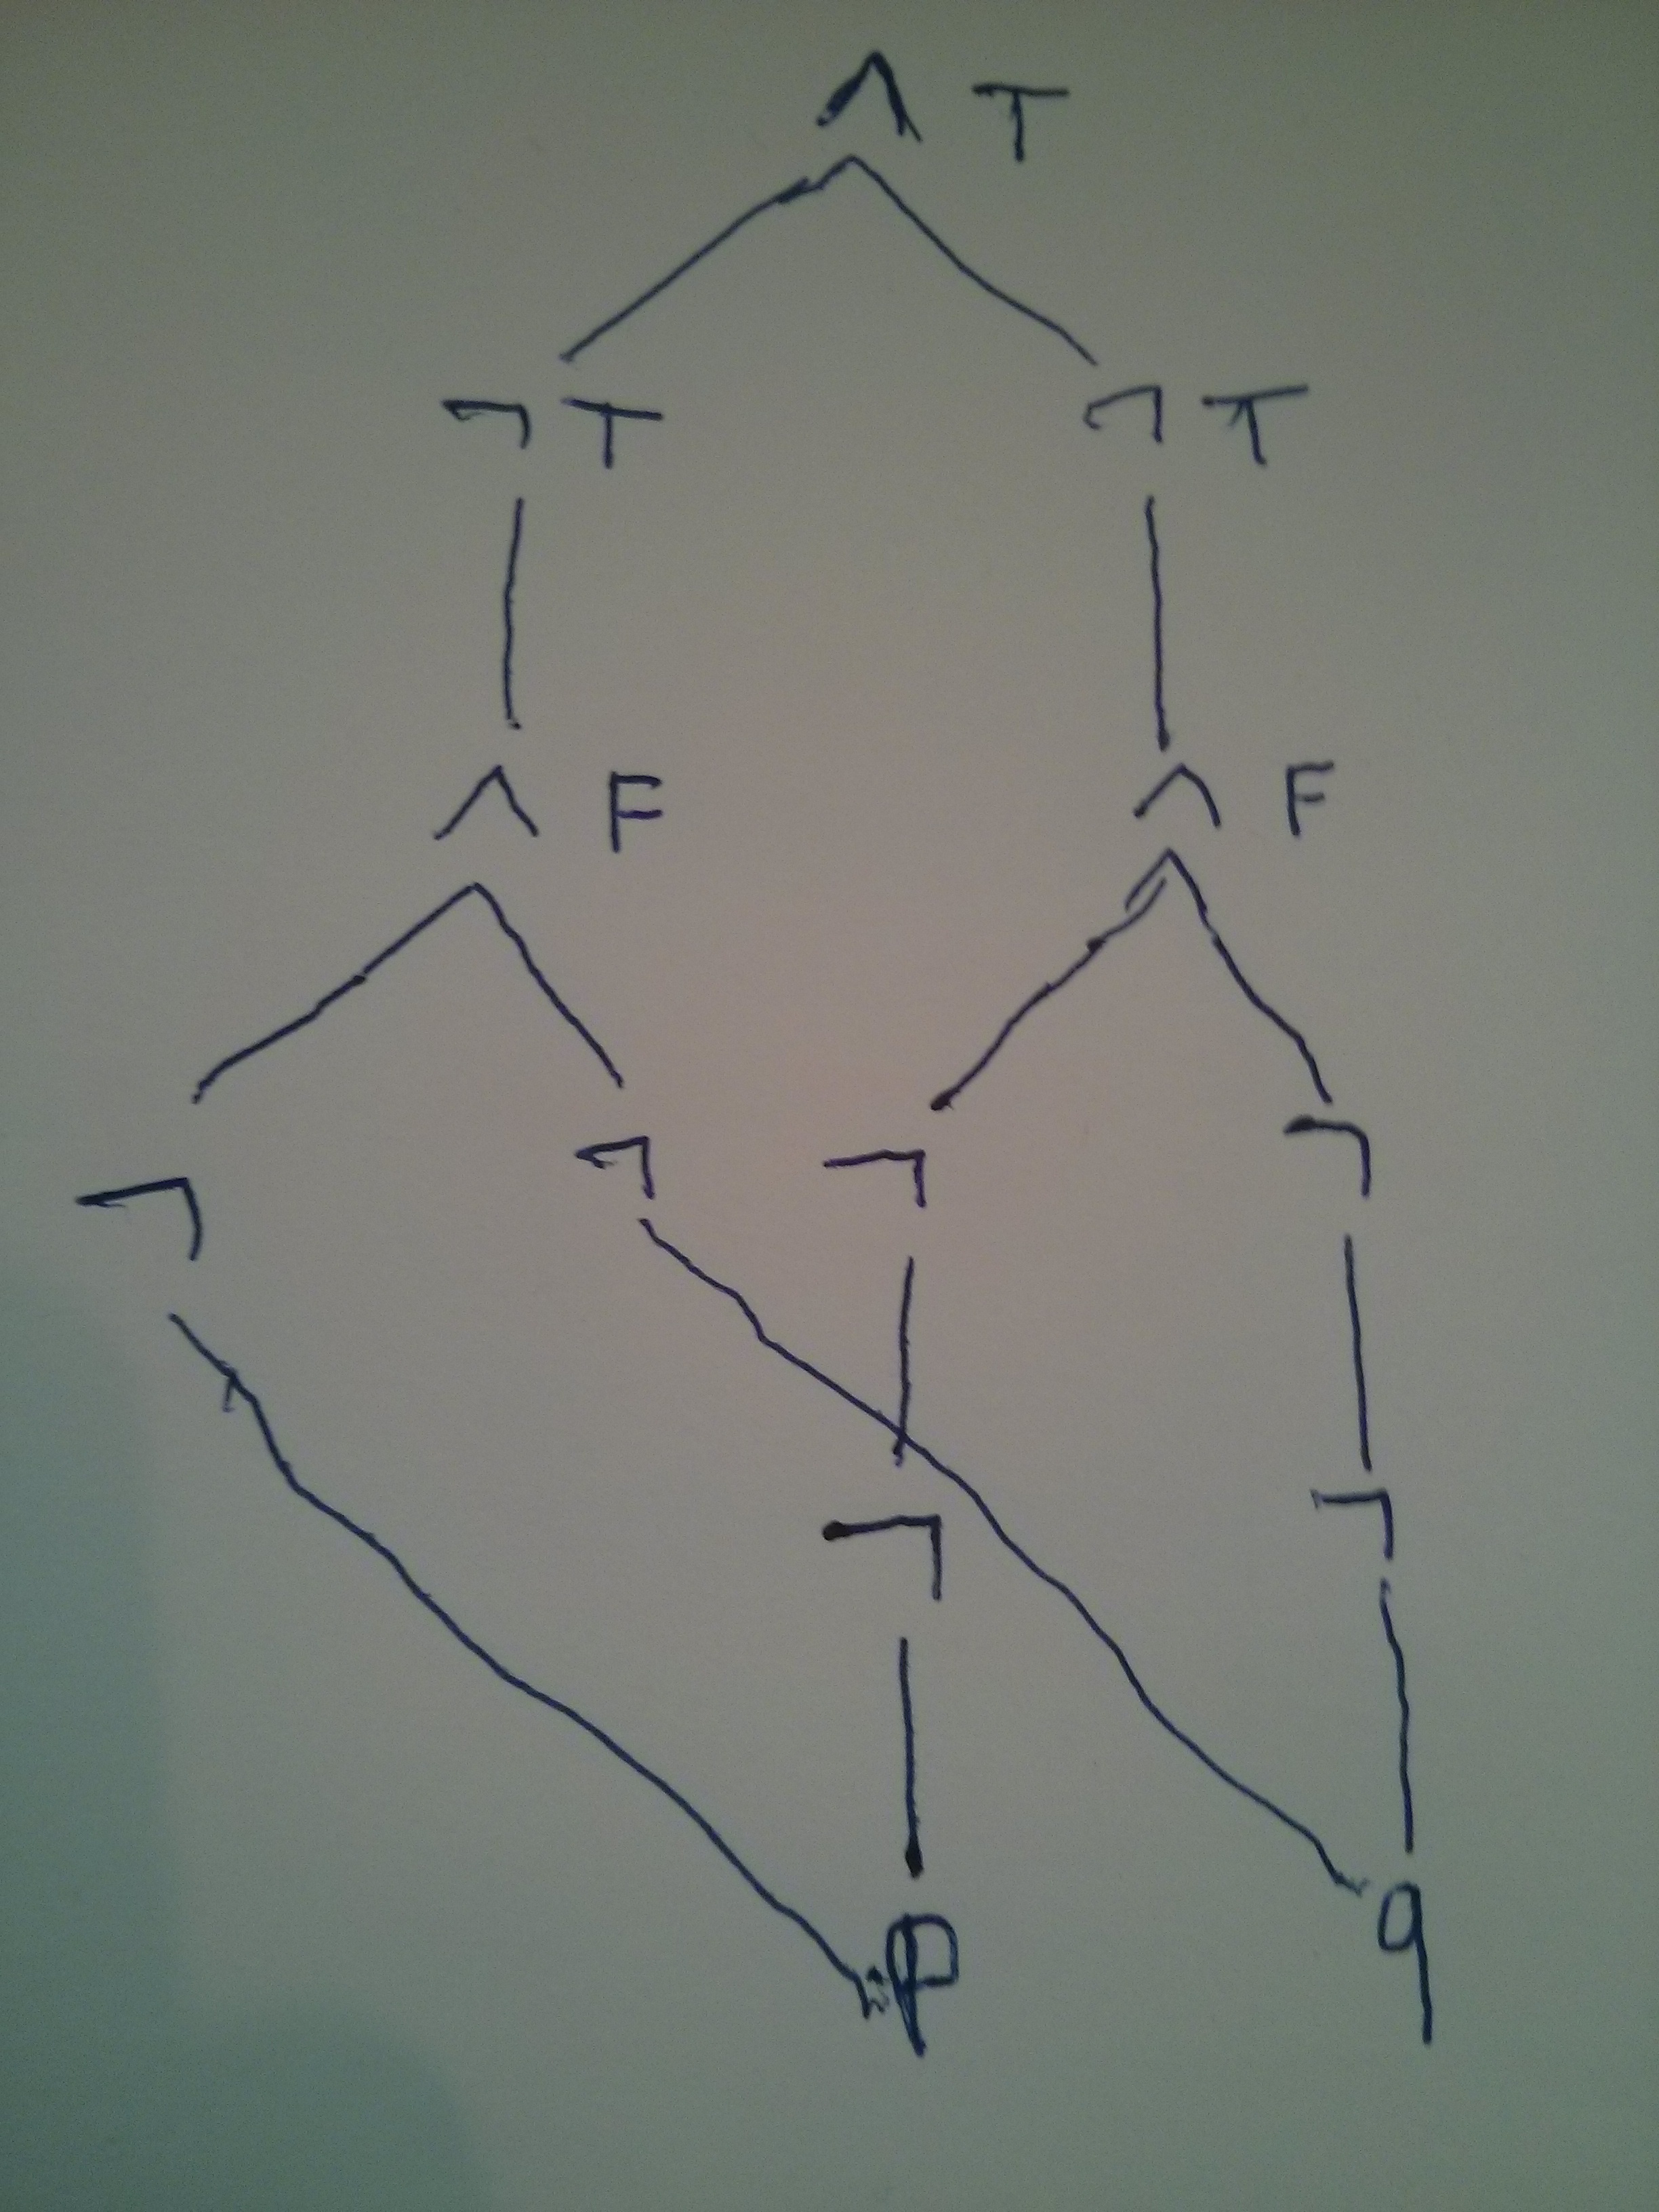 ∧ T
¬ T ¬ T
∧ F ∧ F
¬ ¬ ¬ ¬
¬ ¬
p q